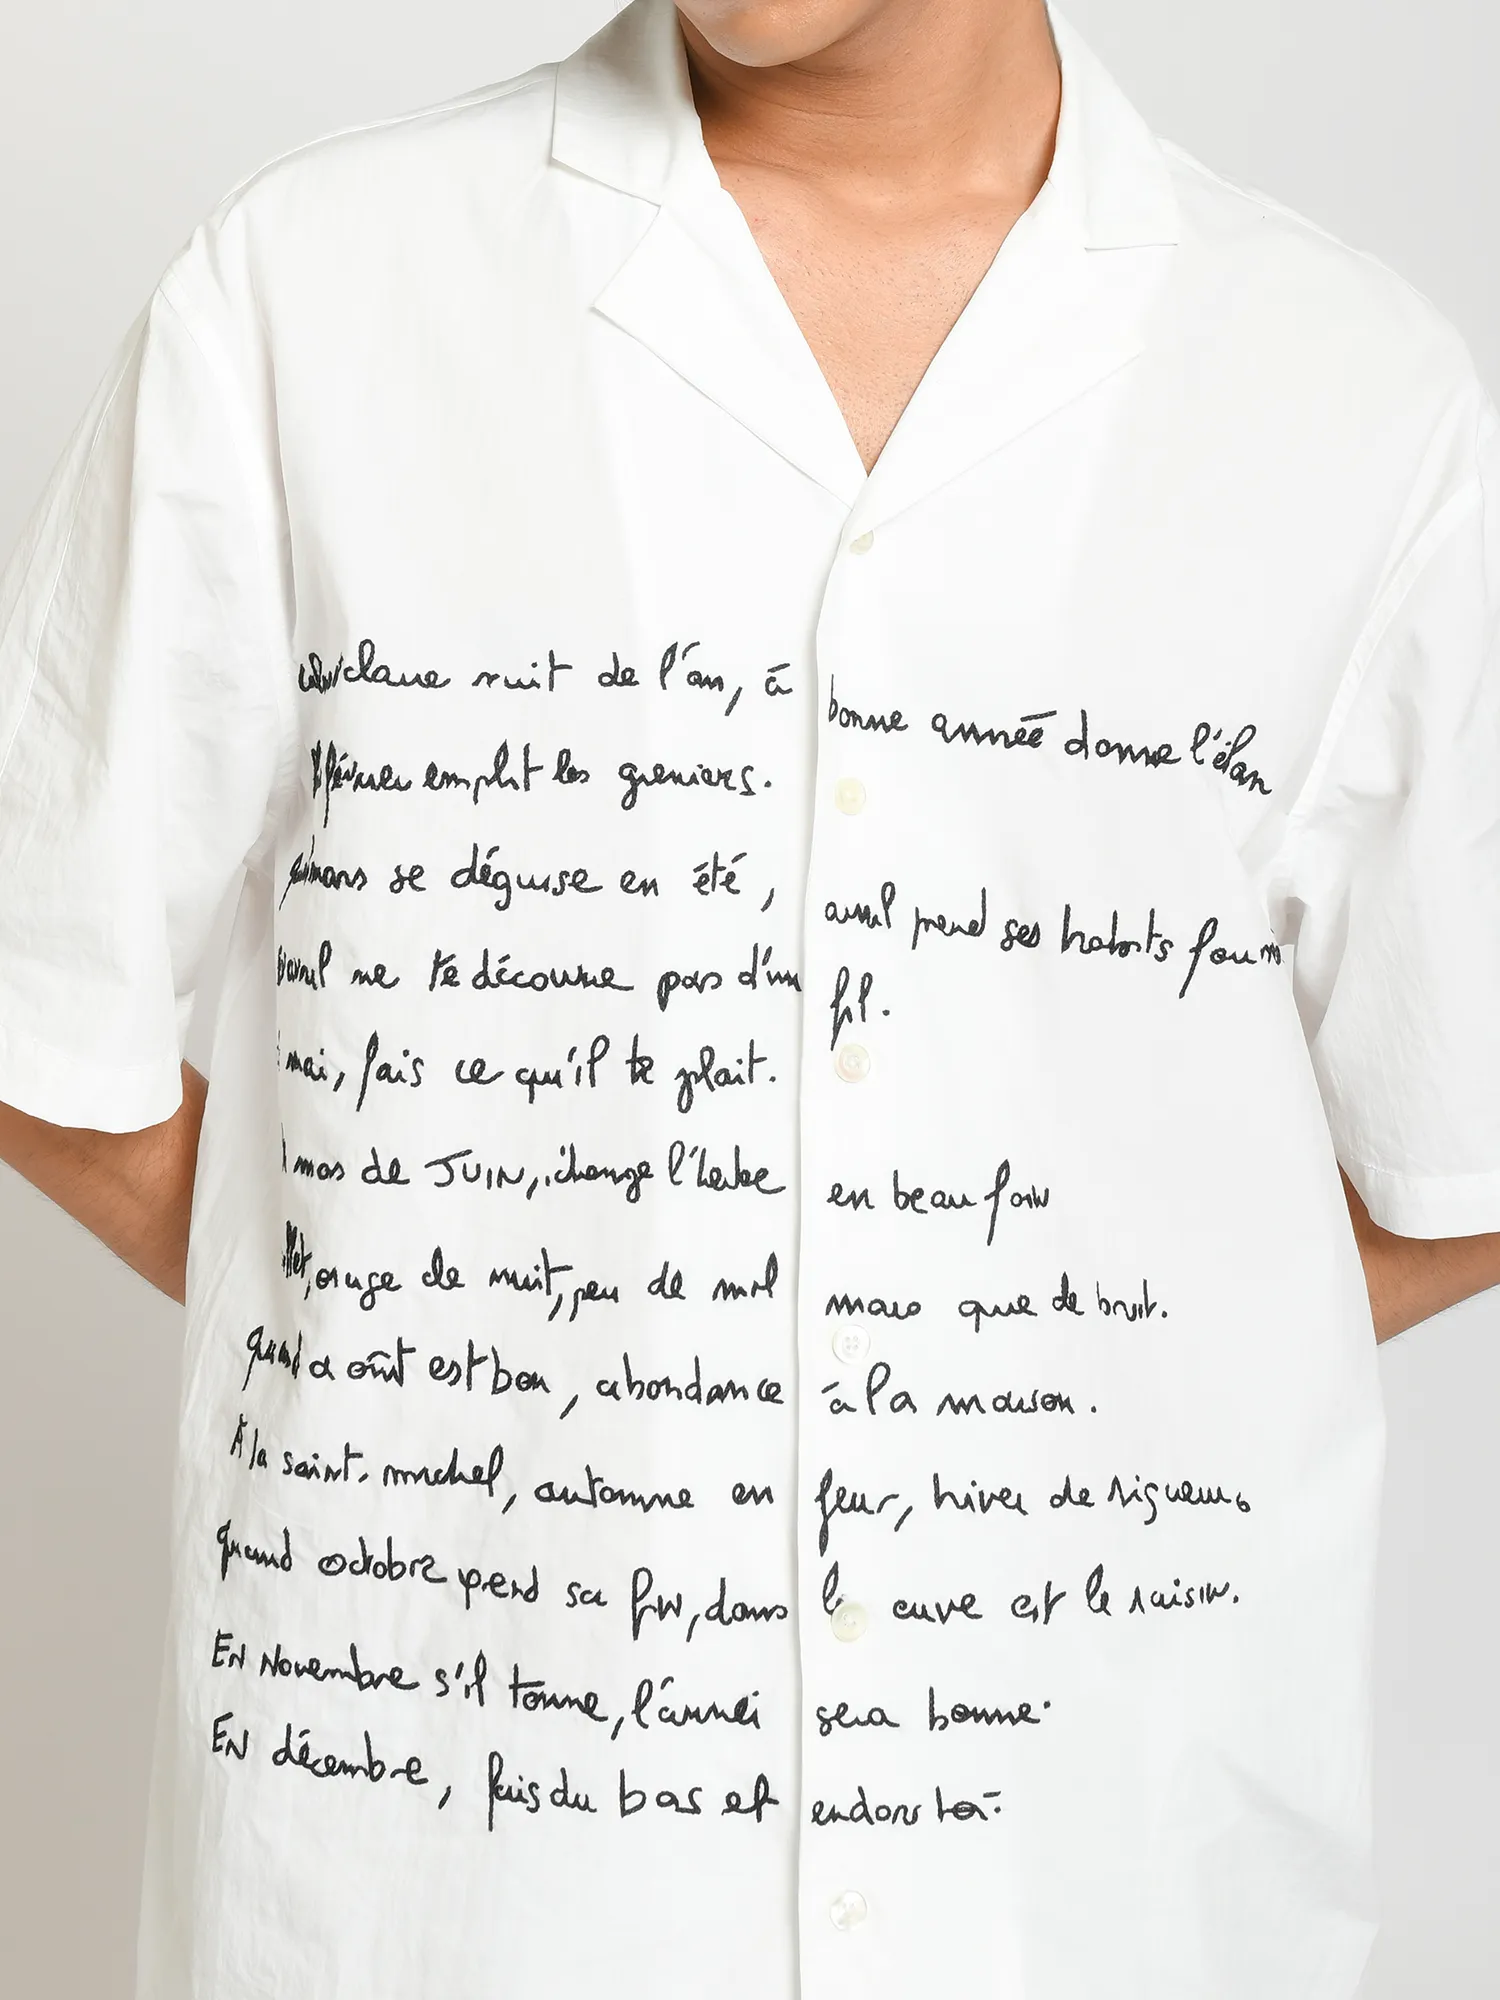 claire nuit de l'an, à bonne année donne l'élan
février emplit les greniers.
mars se déguise en été, avril prend ses habits fourrés
avril ne te découvre pas d'un fil.
mai, fais ce qu'il te plait.
mois de JUIN, change l'herbe en beau foin
orage de nuit, peu de mal mais que de bruit.
quand août est bon, abondance à la maison.
À la saint-michel, automne en fleur, hiver de rigueur.
quand octobre prend sa fin, dans la cuve est le raisin.
EN Novembre s'il tonne, l'année sera bonne.
EN décembre, fais du bas et endors toi.